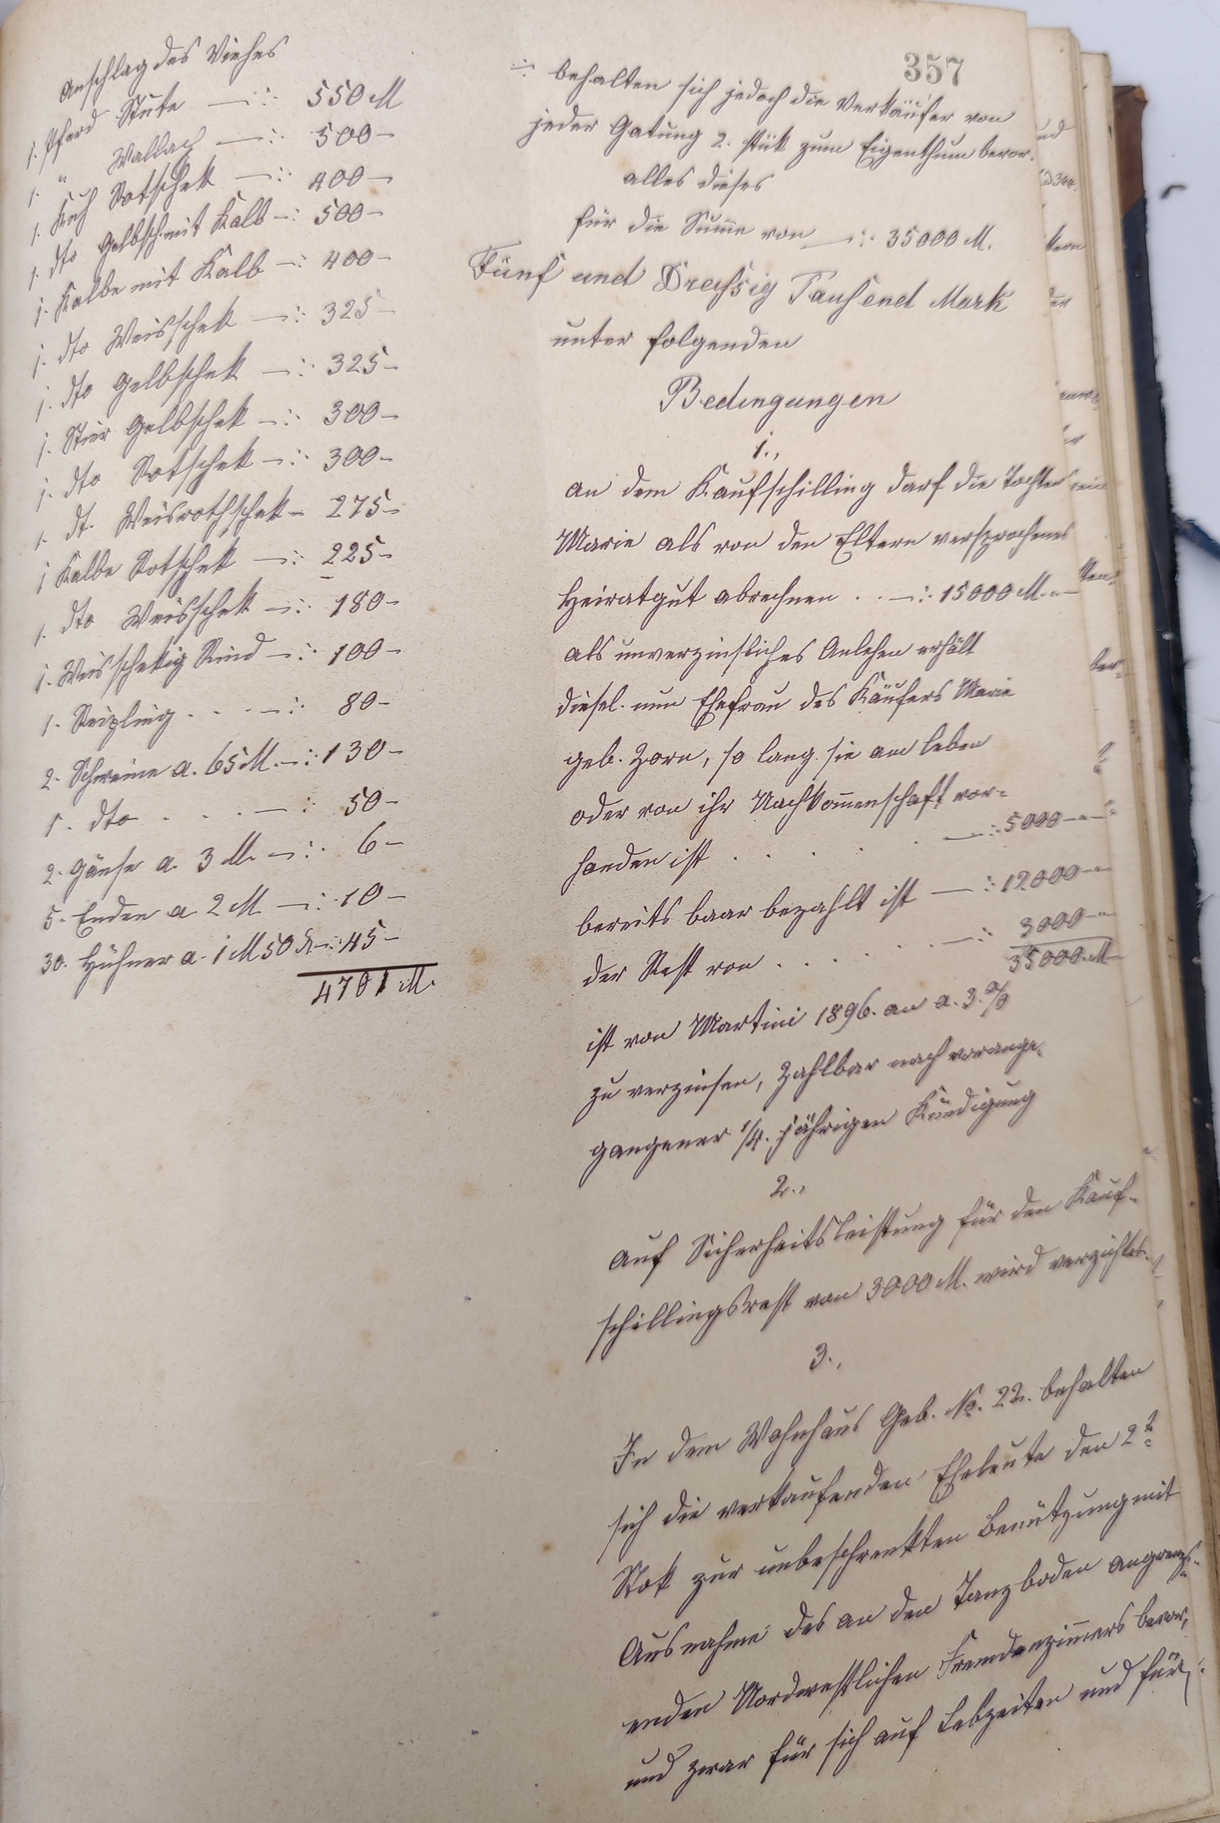 Anschlag des Viehes
1. Pferd Stute —:: 550 M
1. " Wallach —:: 500 —
1. Kuh Rotschek —:: 400 —
1. dto Gelbsch. mit Kalb —: 500 —
1. Kalbe mit Kalb —: 400 —
1. dto Weisschek —:: 325 —
1. dto Gelbschek —:: 325 —
1. Stier Gelbschek —:: 300 —
1. dto Rotschek —:: 300 —
1. dt. Weisrothschek — 275 —
1 Kalbe Rotschek —:: 225 —
1. dto Weisschek —:: 180 —
1. Weisschekig Rind —:: 100 —
1. . . . —:: 80 —
2. Schweine a. 65 M. —:: 130 —
1. dto . . . —:: 50 —
2. Gänse a. 3 M. —:: 6 —
5. Enden a 2 M —:: 10 —
30. Hühner a. 1 M 50 —:: 45 —
4701 M.
357
÷ behalten sich jedoch die Verkäüfer von
jeder Gatung 2. stük zum Eigenthum bevor.
alles dieses
für die Sum̄e von —:: 35000 M.
Fünf und Dreissig Tausend Mark
unter folgenden
Bedingungen
1.,
An dem Kaufschilling darf die Tochter
Marie als von den Eltern versprochenes
Heiratgut abrechnen . . —:: 15000 M. —
als unverzinsliches Anlehen erhält
diesel. nun Ehefrau des Käüfers Marie
geb. Zorn, so lang sie am Leben
oder von ihr Nachkom̄enschaft vor-
handen ist . . . . . —:: 5000 —
bereits baar bezahlt ist —:: 12000 —
der Rest von . . . . . —:: 3000 —
35000 M
ist von Martini 1896. an a. 3. %
zu verzinsen, Zahlbar nach vorange-
gangener 1/4. jährigen Kündigung
2.,
Auf Sicherheitsleistung für den Kauf-
schillingsrest von 3000 M. wird verzichtet.
3.,
In dem Wohnhaus Geb. No. 22. behalten
sich die verkaufenden Eheleute den 2t.
Stok zur unbeschrenkten Benützung mit
Ausnahme des an den Tanzboden angrenz-
enden Nordwestlichen Fremdenzim̄ers bevor,
und zwar für sich auf Lebzeiten und für